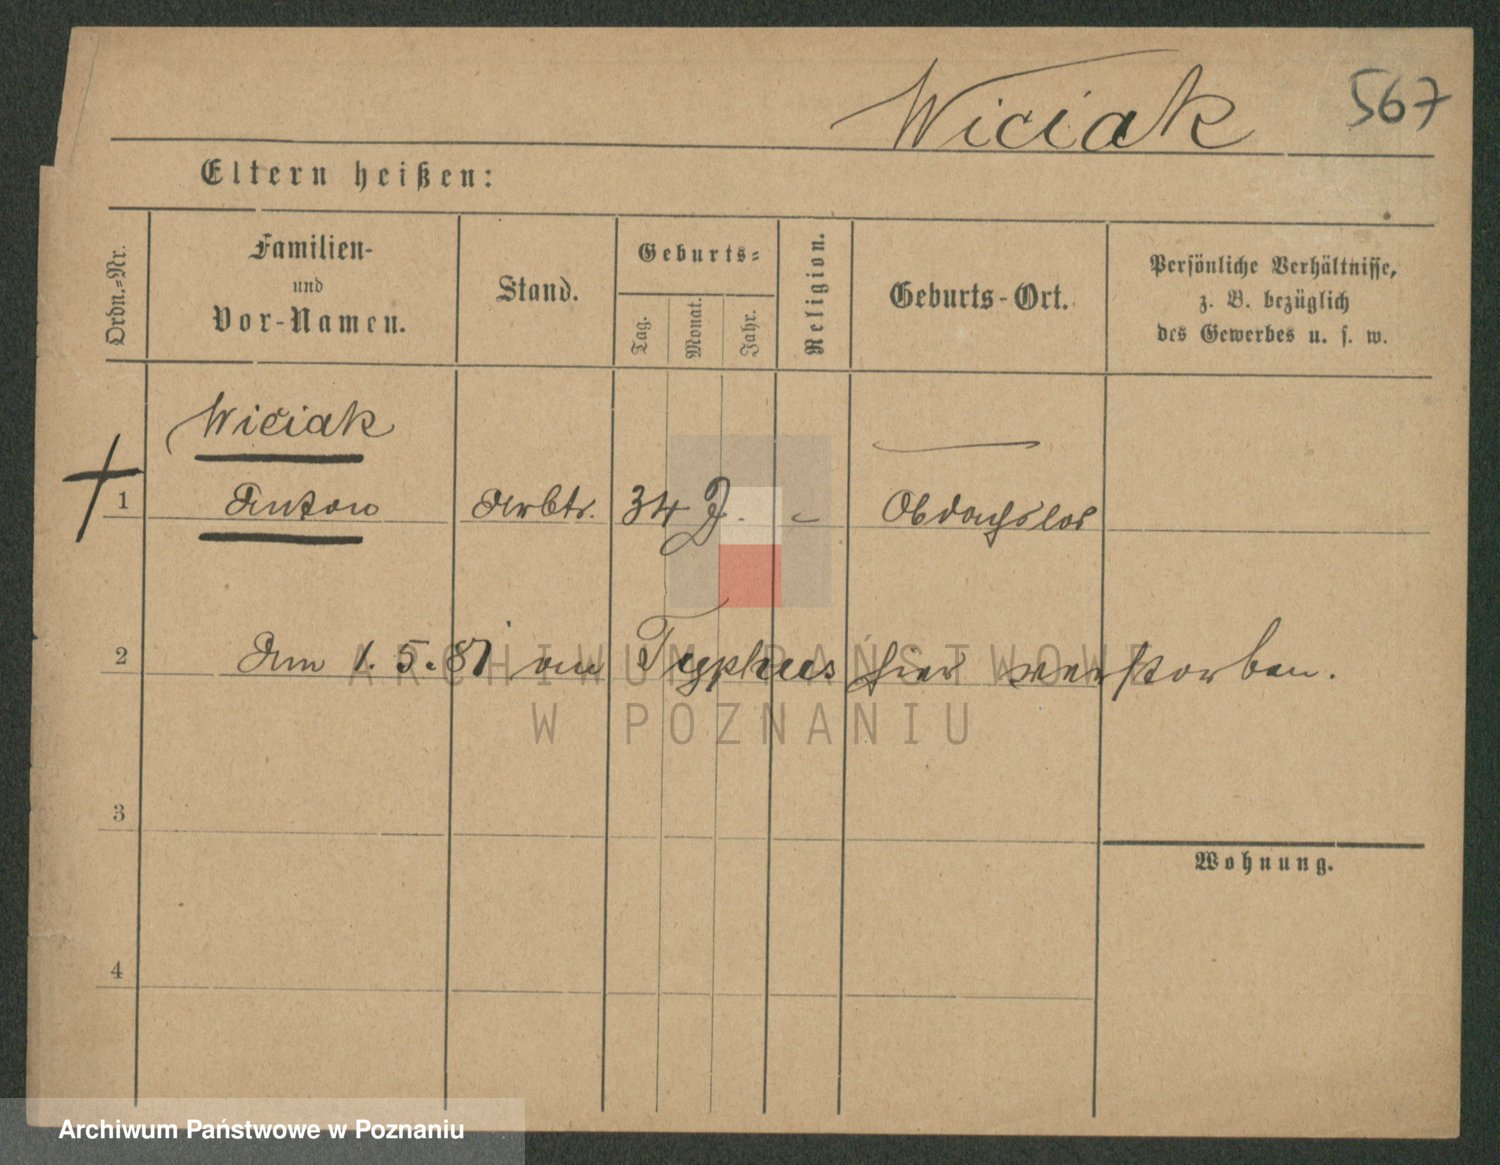 Wiciak 567
Eltern heißen:
Ordn.-Nr.
Familien-
und
Vor-Namen.
Stand.
Geburts-
Tag.
Monat.
Jahr.
Religion.
Geburts-Ort.
Persönliche Verhältnisse,
z. B. bezüglich
des Gewerbes u. s. w.
Wiciak
1 Anton Arbtr. 34 J. - Obdachslos
2 Am 1.5.81 am Typhus hier verstorben.
3
Wohnung.
4
ARCHIWUM PAŃSTWOWE
W POZNANIU
Archiwum Państwowe w Poznaniu